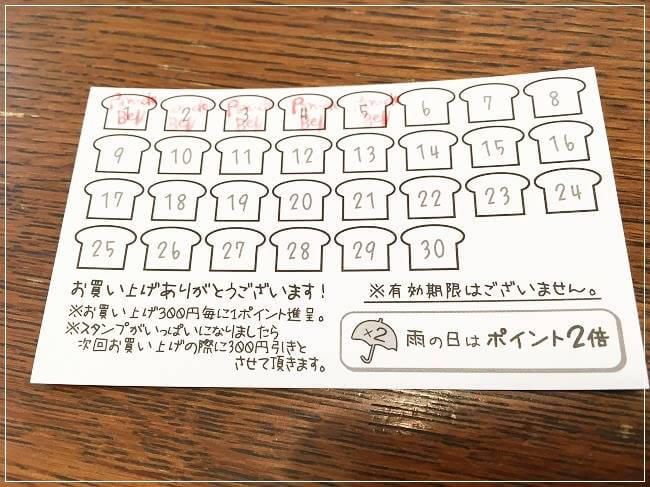 Pan-de Bell Pan-de Bell Pan-de Bell Pan-de Bell Pan-de Bell
1 2 3 4 5 6 7 8
9 10 11 12 13 14 15 16
17 18 19 20 21 22 23 24
25 26 27 28 29 30
お買い上げありがとうございます!
※お買い上げ300円毎に1ポイント進呈。
※スタンプがいっぱいになりましたら
次回お買い上げの際に300円引きと
させて頂きます。
※有効期限はございません。
×2 雨の日はポイント2倍